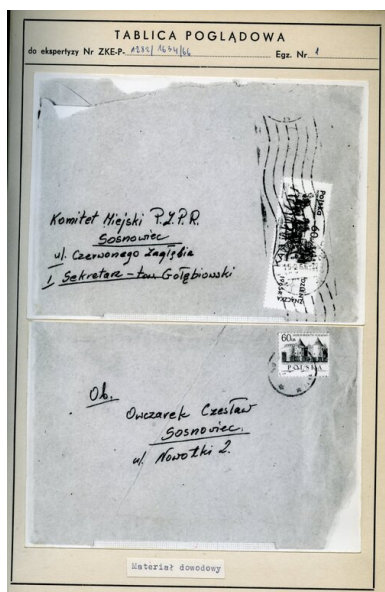 TABLICA POGLĄDOWA
do ekspertyzy Nr ZKE-P- 1282/1634/66 Egz. Nr 1
Komitet Miejski P.Z.P.R.
Sosnowiec
ul. Czerwonego Zagłębia
I Sekretarz - tow. Gołębiowski
Polska
60
60 gr
POLSKA
Ob.
Owczarek Czesław
Sosnowiec.
ul. Nowotki 2.
Materiał dowodowy